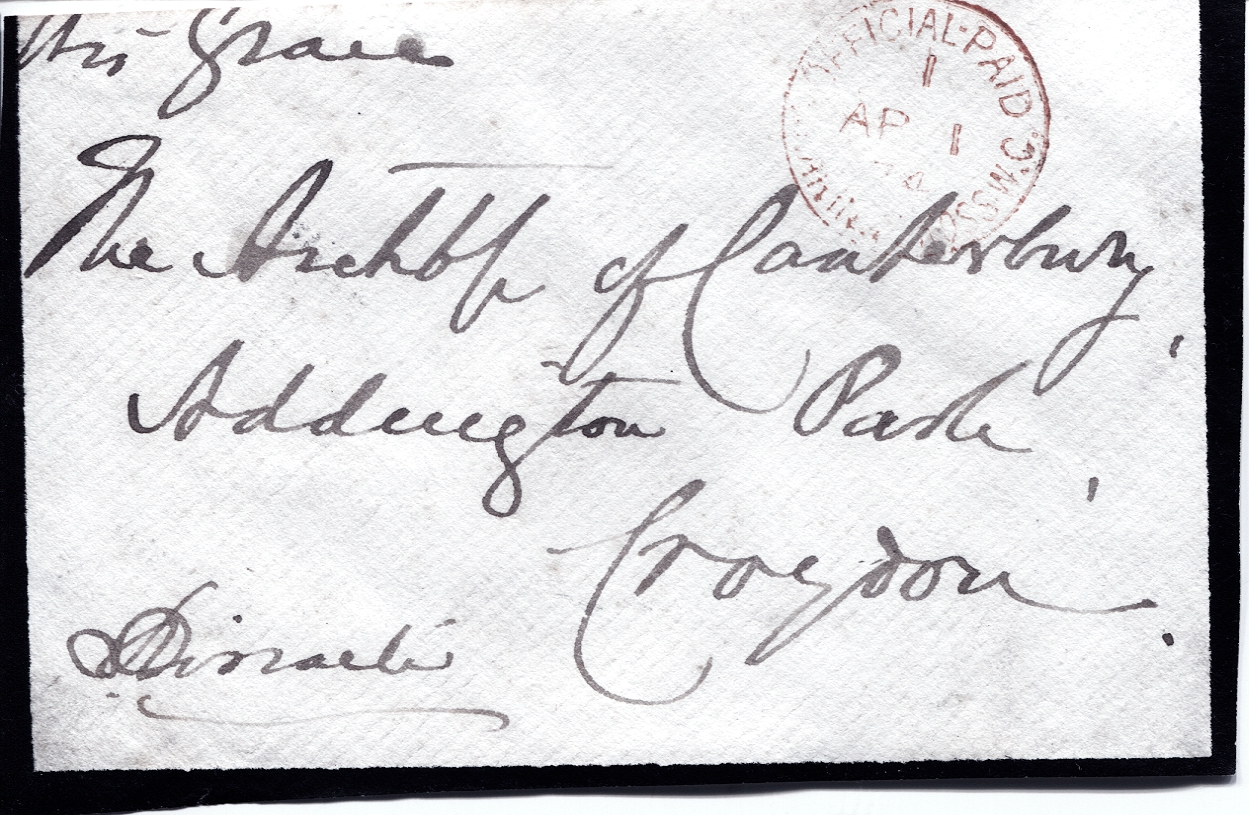 His Grace
OFFICIAL·PAID
1
AP 1
74
The Archbp of Canterbury,
Addington Park,
Croydon.
Disraeli